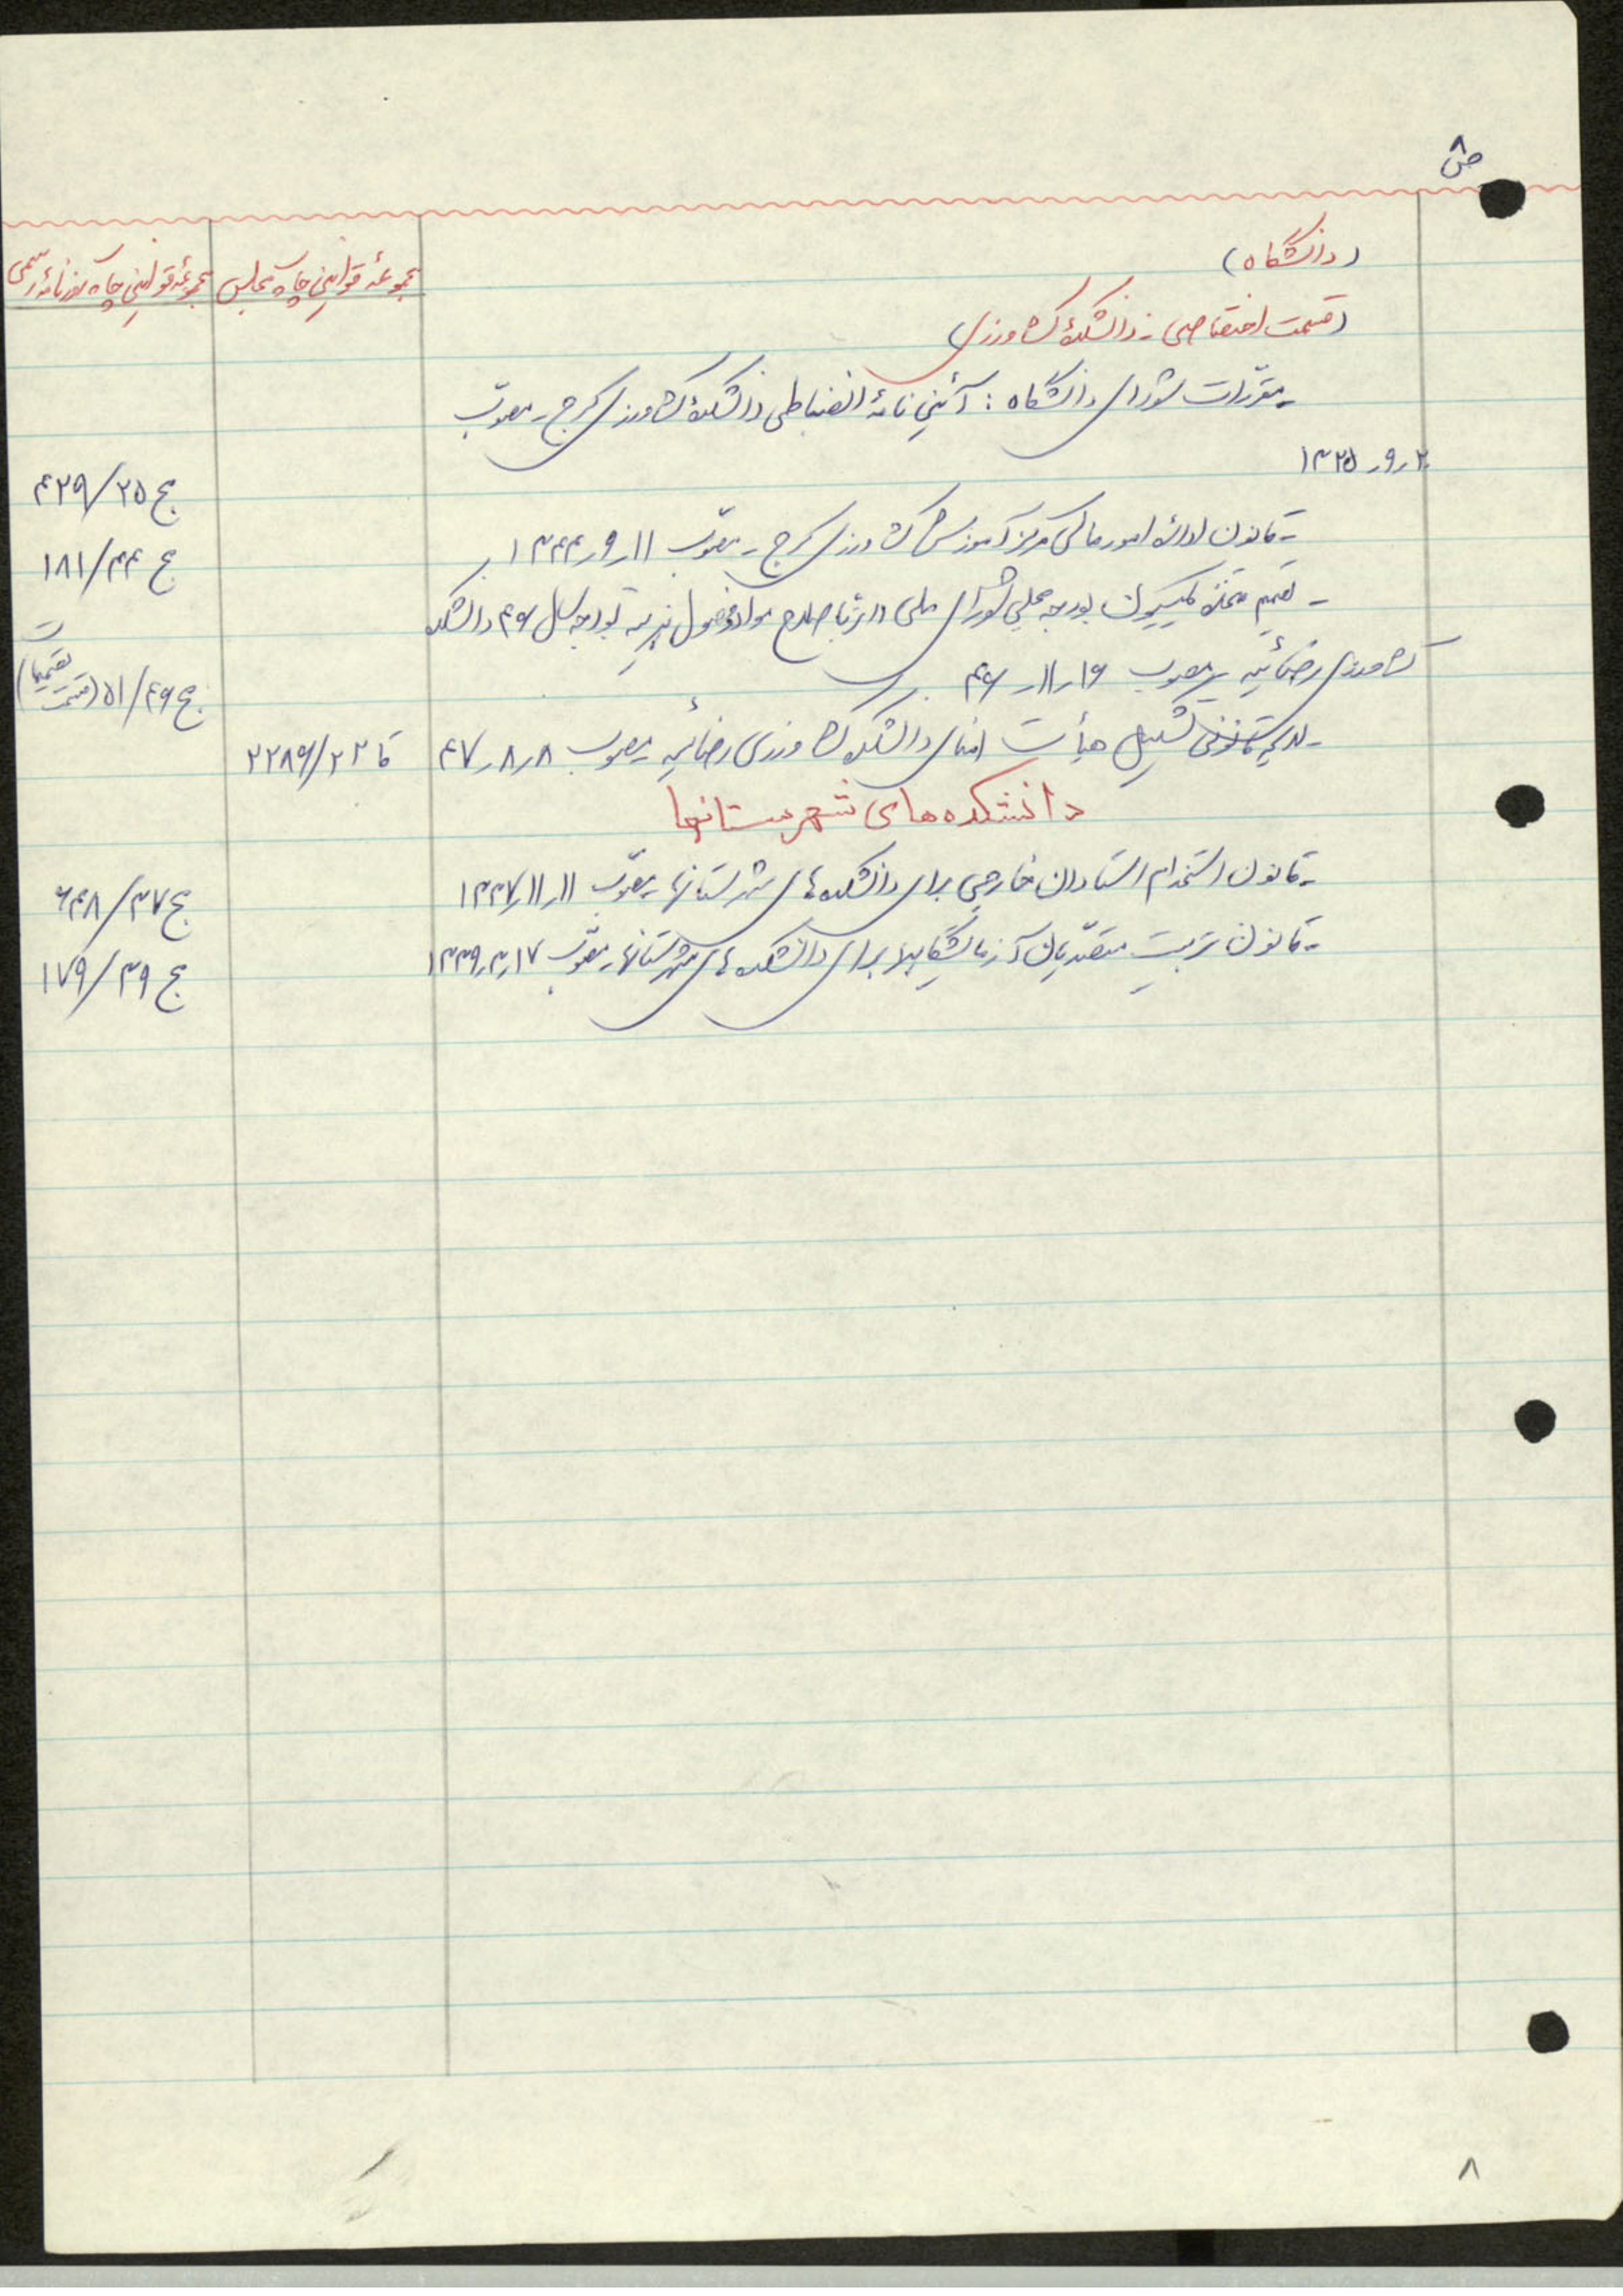 ض ۸
(دانشگاه)
مجموعهٔ قوانین چاپ مجلس
مجموعهٔ قوانین چاپ روزنامهٔ رسمی
(قسمت اختصاصی - دانشکدهٔ کشاورزی)
- مقرّرات شورای دانشگاه : آئین نامهٔ انضباطی دانشکدهٔ کشاورزی کرج - مصوّب
۲ر۹ر۱۳۲۵
ج ۲۵/۴۲۹
- قانون ادارهٔ امور مالی مرکز آموزش کشاورزی کرج - مصوّب ۱۱ر۹ر۱۳۴۴
ج ۴۴/۱۸۱
- تصمیم متخذه کمیسیون بودجه مجلس شورای ملی دائر باصلاح مواد و فصول بودجه سال ۴۶ دانشکده
کشاورزی رضائیه - مصوب ۱۶ر۱۱ر۴۶
ج ۴۶/۵۱ (قسمت تصمیمات)
- تشکیل هیأت امنای دانشکده کشاورزی رضائیه - مصوب ۸ر۸ر۴۷
قا ۲۲/۲۲۸۶
دانشکده‌های شهرستانها
- قانون استخدام استادان خارجی برای دانشکده‌های شهرستانها - مصوّب ۱۱ر۱۱ر۱۳۳۷
ج ۳۷/۶۴۸
- قانون تربیت متصدّیان آزمایشگاهها برای دانشکده‌های شهرستانها - مصوّب ۱۷ر۳ر۱۳۳۹
ج ۳۹/۱۷۹
۸